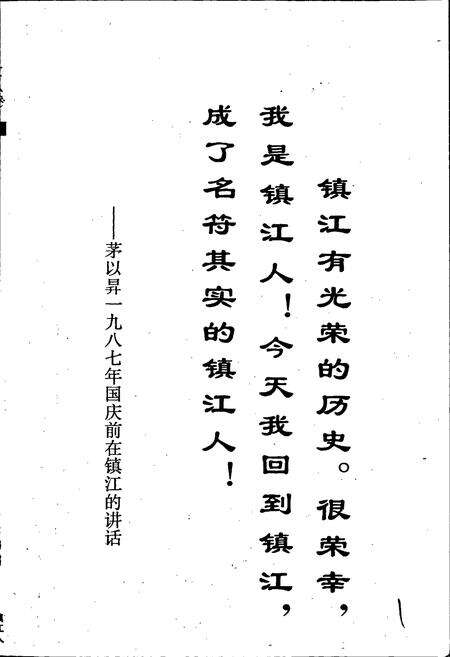 镇江有光荣的历史。很荣幸，
我是镇江人！今天我回到镇江，
成了名符其实的镇江人！
——茅以昇一九八七年国庆前在镇江的讲话